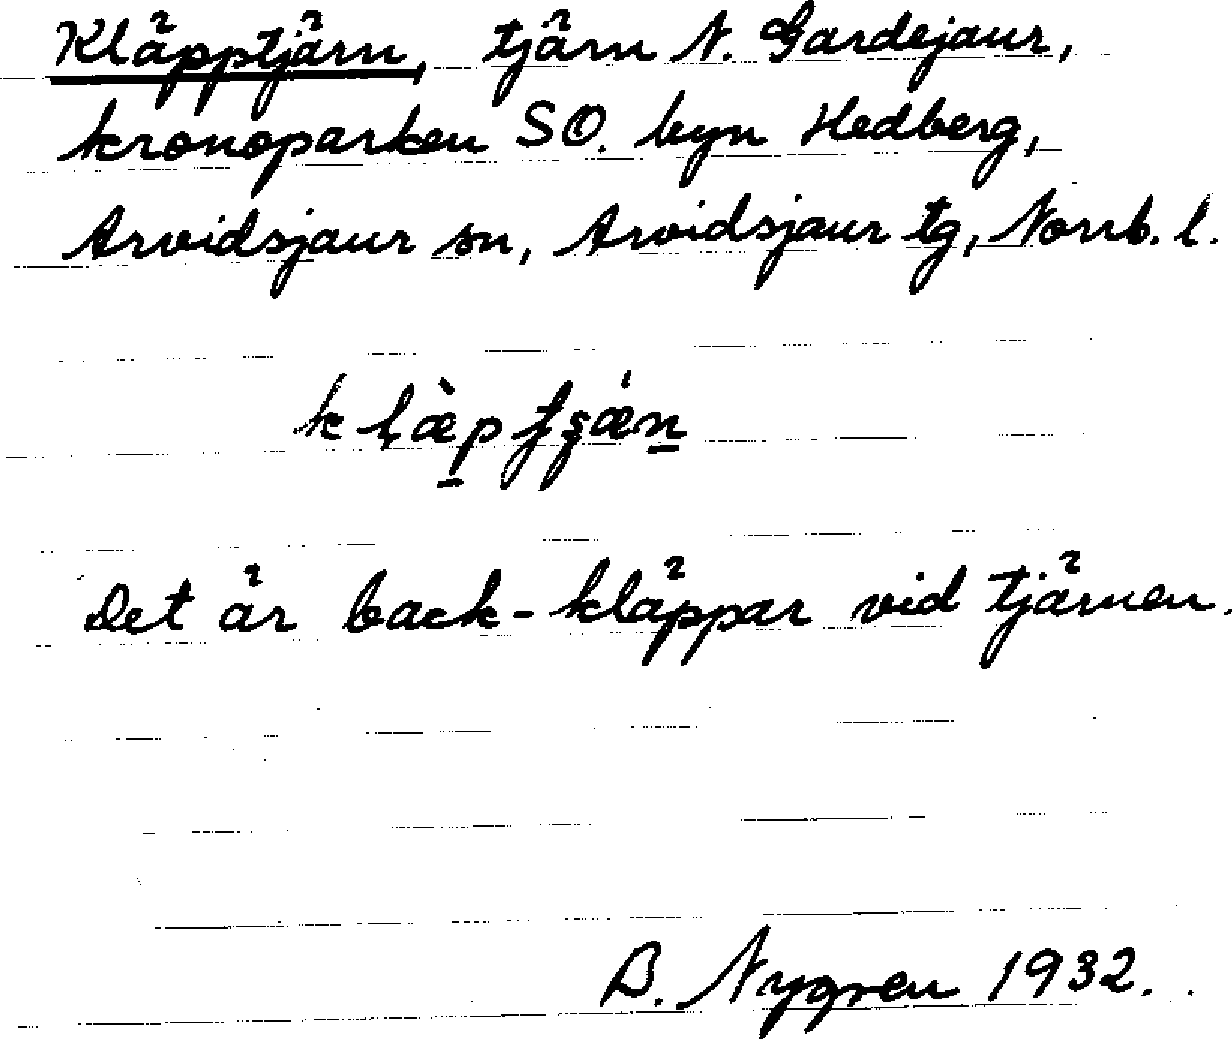 Kläpptjärn, tjärn N. Gardejaur,
kronoparken SO. byn Hedberg,
Arvidsjaur sn, Arvidsjaur tg, Norrb. l.
Det är back-kläppar vid tjärnen.
B. Nygren 1932.